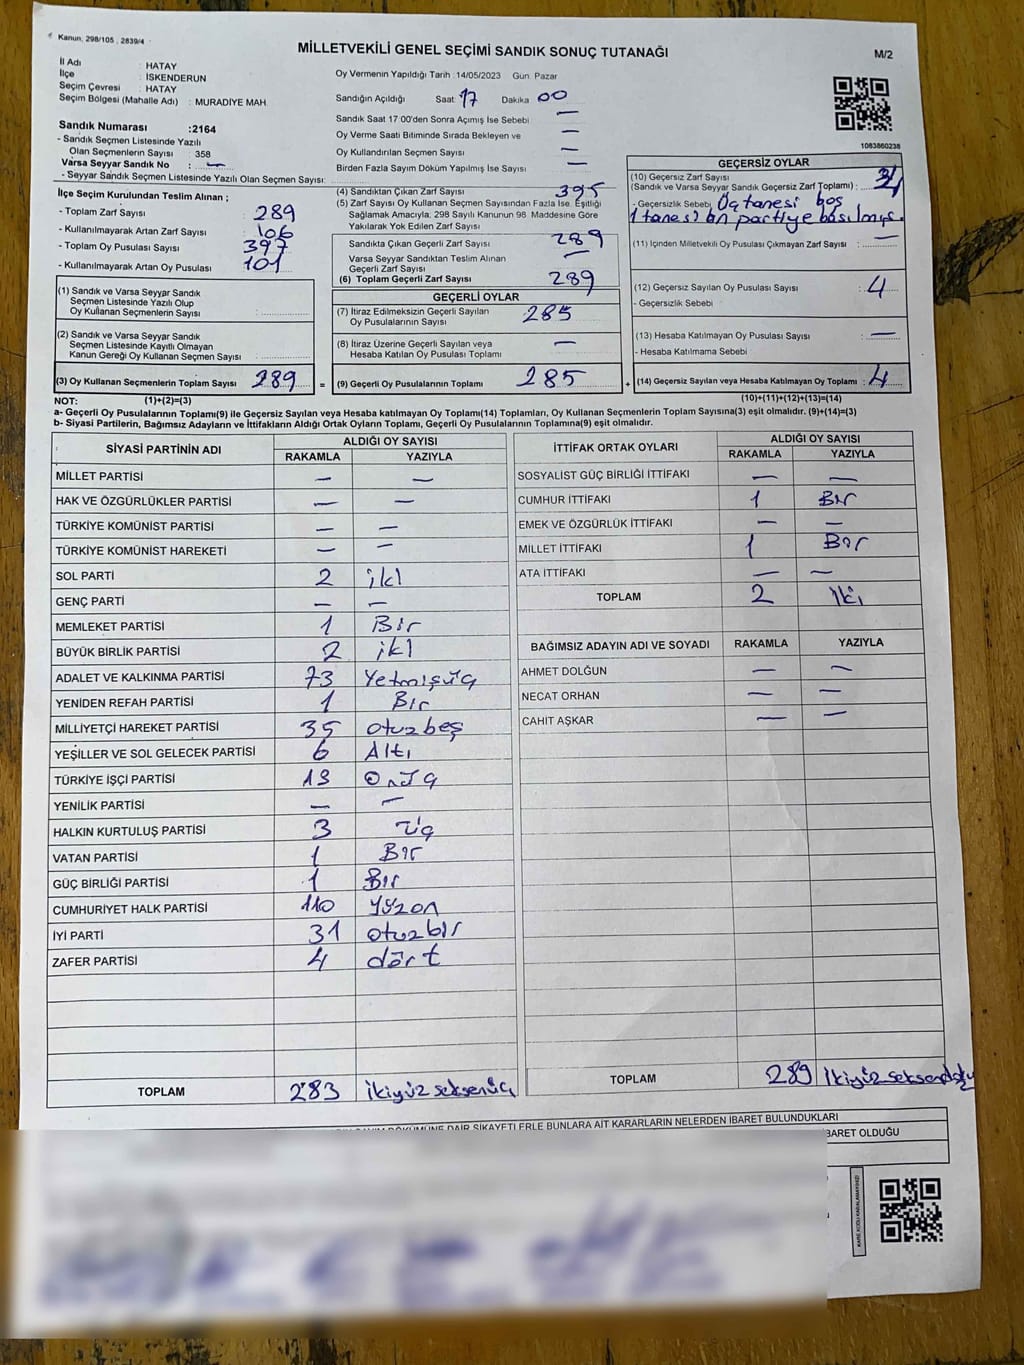 Kanun; 298/105 ; 2839/4
MİLLETVEKİLİ GENEL SEÇİMİ SANDIK SONUÇ TUTANAĞI
M/2
İl Adı : HATAY
İlçe : İSKENDERUN
Seçim Çevresi : HATAY
Seçim Bölgesi (Mahalle Adı) : MURADİYE MAH.
Sandık Numarası :2164
- Sandık Seçmen Listesinde Yazılı
Olan Seçmenlerin Sayısı : 358
Varsa Seyyar Sandık No : —
- Seyyar Sandık Seçmen Listesinde Yazılı Olan Seçmen Sayısı:
Oy Vermenin Yapıldığı Tarih :14/05/2023 Gün: Pazar
Sandığın Açıldığı Saat 17 Dakika 00
Sandık Saat 17:00'den Sonra Açımış İse Sebebi —
Oy Verme Saati Bitiminde Sırada Bekleyen ve —
Oy Kullandırılan Seçmen Sayısı —
Birden Fazla Sayım Döküm Yapılmış İse Sayısı —
1083860238
İlçe Seçim Kurulundan Teslim Alınan ;
- Toplam Zarf Sayısı 289
- Kullanılmayarak Artan Zarf Sayısı 106
- Toplam Oy Pusulası Sayısı 397
- Kullanılmayarak Artan Oy Pusulası 101
(1) Sandık ve Varsa Seyyar Sandık
Seçmen Listesinde Yazılı Olup
Oy Kullanan Seçmenlerin Sayısı :
(2) Sandık ve Varsa Seyyar Sandık
Seçmen Listesinde Kayıtlı Olmayan
Kanun Gereği Oy Kullanan Seçmen Sayısı :
(3) Oy Kullanan Seçmenlerin Toplam Sayısı 289 =
(4) Sandıktan Çıkan Zarf Sayısı 395
(5) Zarf Sayısı Oy Kullanan Seçmen Sayısından Fazla İse, Eşitliği
Sağlamak Amacıyla; 298 Sayılı Kanunun 98. Maddesine Göre
Yakılarak Yok Edilen Zarf Sayısı
Sandıkta Çıkan Geçerli Zarf Sayısı 289
Varsa Seyyar Sandıktan Teslim Alınan —
Geçerli Zarf Sayısı
(6) Toplam Geçerli Zarf Sayısı 289
GEÇERLİ OYLAR
(7) İtiraz Edilmeksizin Geçerli Sayılan 285
Oy Pusulalarının Sayısı
(8) İtiraz Üzerine Geçerli Sayılan veya —
Hesaba Katılan Oy Pusulası Toplamı
(9) Geçerli Oy Pusulalarının Toplamı 285 +
GEÇERSİZ OYLAR
(10) Geçersiz Zarf Sayısı
(Sandık ve Varsa Seyyar Sandık Geçersiz Zarf Toplamı) :
- Geçersizlik Sebebi Üçtanesi boş
1 tanesi bn partiye basılmış.
(11) İçinden Milletvekili Oy Pusulası Çıkmayan Zarf Sayısı : —
(12) Geçersiz Sayılan Oy Pusulası Sayısı : 4
- Geçersizlik Sebebi
(13) Hesaba Katılmayan Oy Pusulası Sayısı : —
- Hesaba Katılmama Sebebi
(14) Geçersiz Sayılan veya Hesaba Katılmayan Oy Toplamı : 4
NOT: (1)+(2)=(3) (10)+(11)+(12)+(13)=(14)
a- Geçerli Oy Pusulalarının Toplamı(9) ile Geçersiz Sayılan veya Hesaba katılmayan Oy Toplamı(14) Toplamları, Oy Kullanan Seçmenlerin Toplam Sayısına(3) eşit olmalıdır. (9)+(14)=(3)
b- Siyasi Partilerin, Bağımsız Adayların ve İttifakların Aldığı Ortak Oyların Toplamı, Geçerli Oy Pusulalarının Toplamına(9) eşit olmalıdır.
SİYASİ PARTİNİN ADI ALDIĞI OY SAYISI
RAKAMLA YAZIYLA
MİLLET PARTİSİ — —
HAK VE ÖZGÜRLÜKLER PARTİSİ — —
TÜRKİYE KOMÜNİST PARTİSİ — —
TÜRKİYE KOMÜNİST HAREKETİ — —
SOL PARTİ 2 iki
GENÇ PARTİ — —
MEMLEKET PARTİSİ 1 Bir
BÜYÜK BİRLİK PARTİSİ 2 iki
ADALET VE KALKINMA PARTİSİ 73 Yetmişüç
YENİDEN REFAH PARTİSİ 1 Bir
MİLLİYETÇİ HAREKET PARTİSİ 35 otuzbeş
YEŞİLLER VE SOL GELECEK PARTİSİ 6 Altı
TÜRKİYE İŞÇİ PARTİSİ 13 Onüç
YENİLİK PARTİSİ — —
HALKIN KURTULUŞ PARTİSİ 3 üç
VATAN PARTİSİ 1 Bir
GÜÇ BİRLİĞİ PARTİSİ 1 Bir
CUMHURİYET HALK PARTİSİ 110 Yüzon
İYİ PARTİ 31 otuzbir
ZAFER PARTİSİ 4 dört
TOPLAM 283 ikiyüzseksenüç
İTTİFAK ORTAK OYLARI ALDIĞI OY SAYISI
RAKAMLA YAZIYLA
SOSYALİST GÜÇ BİRLİĞİ İTTİFAKI — —
CUMHUR İTTİFAKI 1 Bir
EMEK VE ÖZGÜRLÜK İTTİFAKI — —
MİLLET İTTİFAKI 1 Bir
ATA İTTİFAKI — —
TOPLAM 2 İki
BAĞIMSIZ ADAYIN ADI VE SOYADI RAKAMLA YAZIYLA
AHMET DOLĞUN — —
NECAT ORHAN — —
CAHİT AŞKAR — —
TOPLAM 289
DÖKÜMÜNE DAİR ŞİKAYETLERLE BUNLARA AİT KARARLARIN NELERDEN İBARET BULUNDUKLARI
İBARET OLDUĞU